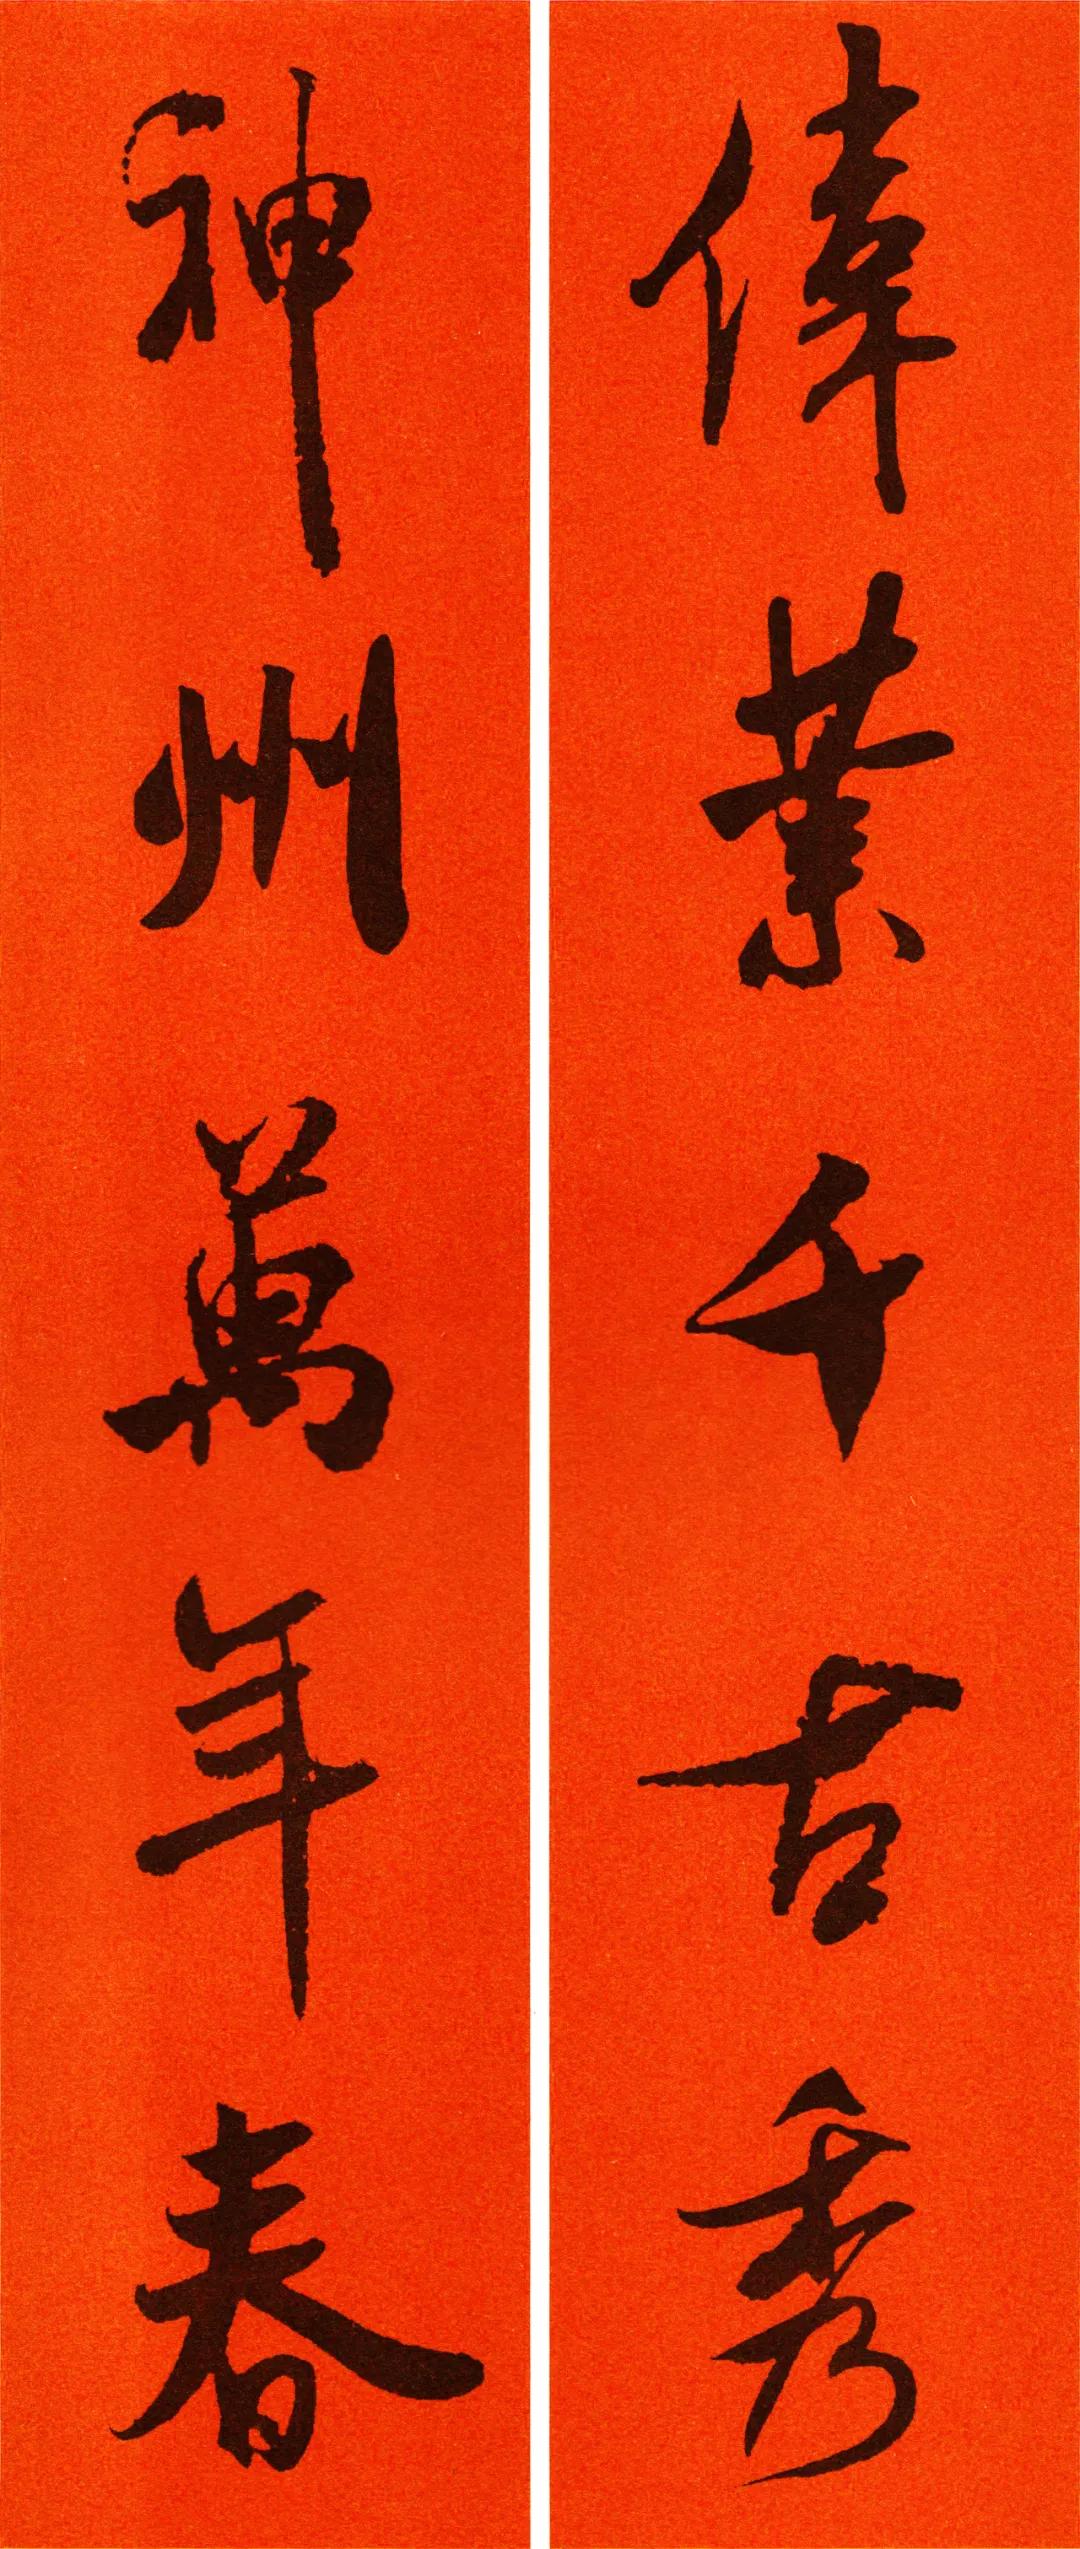 偉業千古秀
神州萬年春